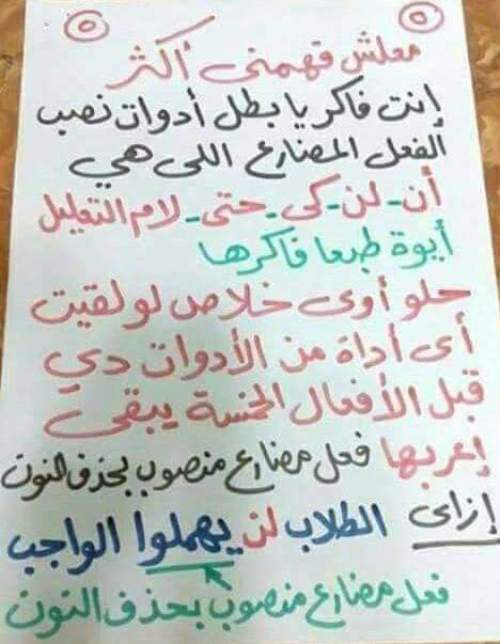 ٥ ٥
معلش فهمنى أكثر
إنت فاكر يا بطل أدوات نصب
الفعل المضارع اللى هي
أن - لن - كى - حتى - لام التعليل
أيوة طبعا فاكرها
حلو أوى خلاص لو لقيت
أى أداة من الأدوات دي
قبل الأفعال الخمسة يبقى
إعربها فعل مضارع منصوب بحذف النون
إزاى الطلاب لن يهملوا الواجب
فعل مضارع منصوب بحذف النون